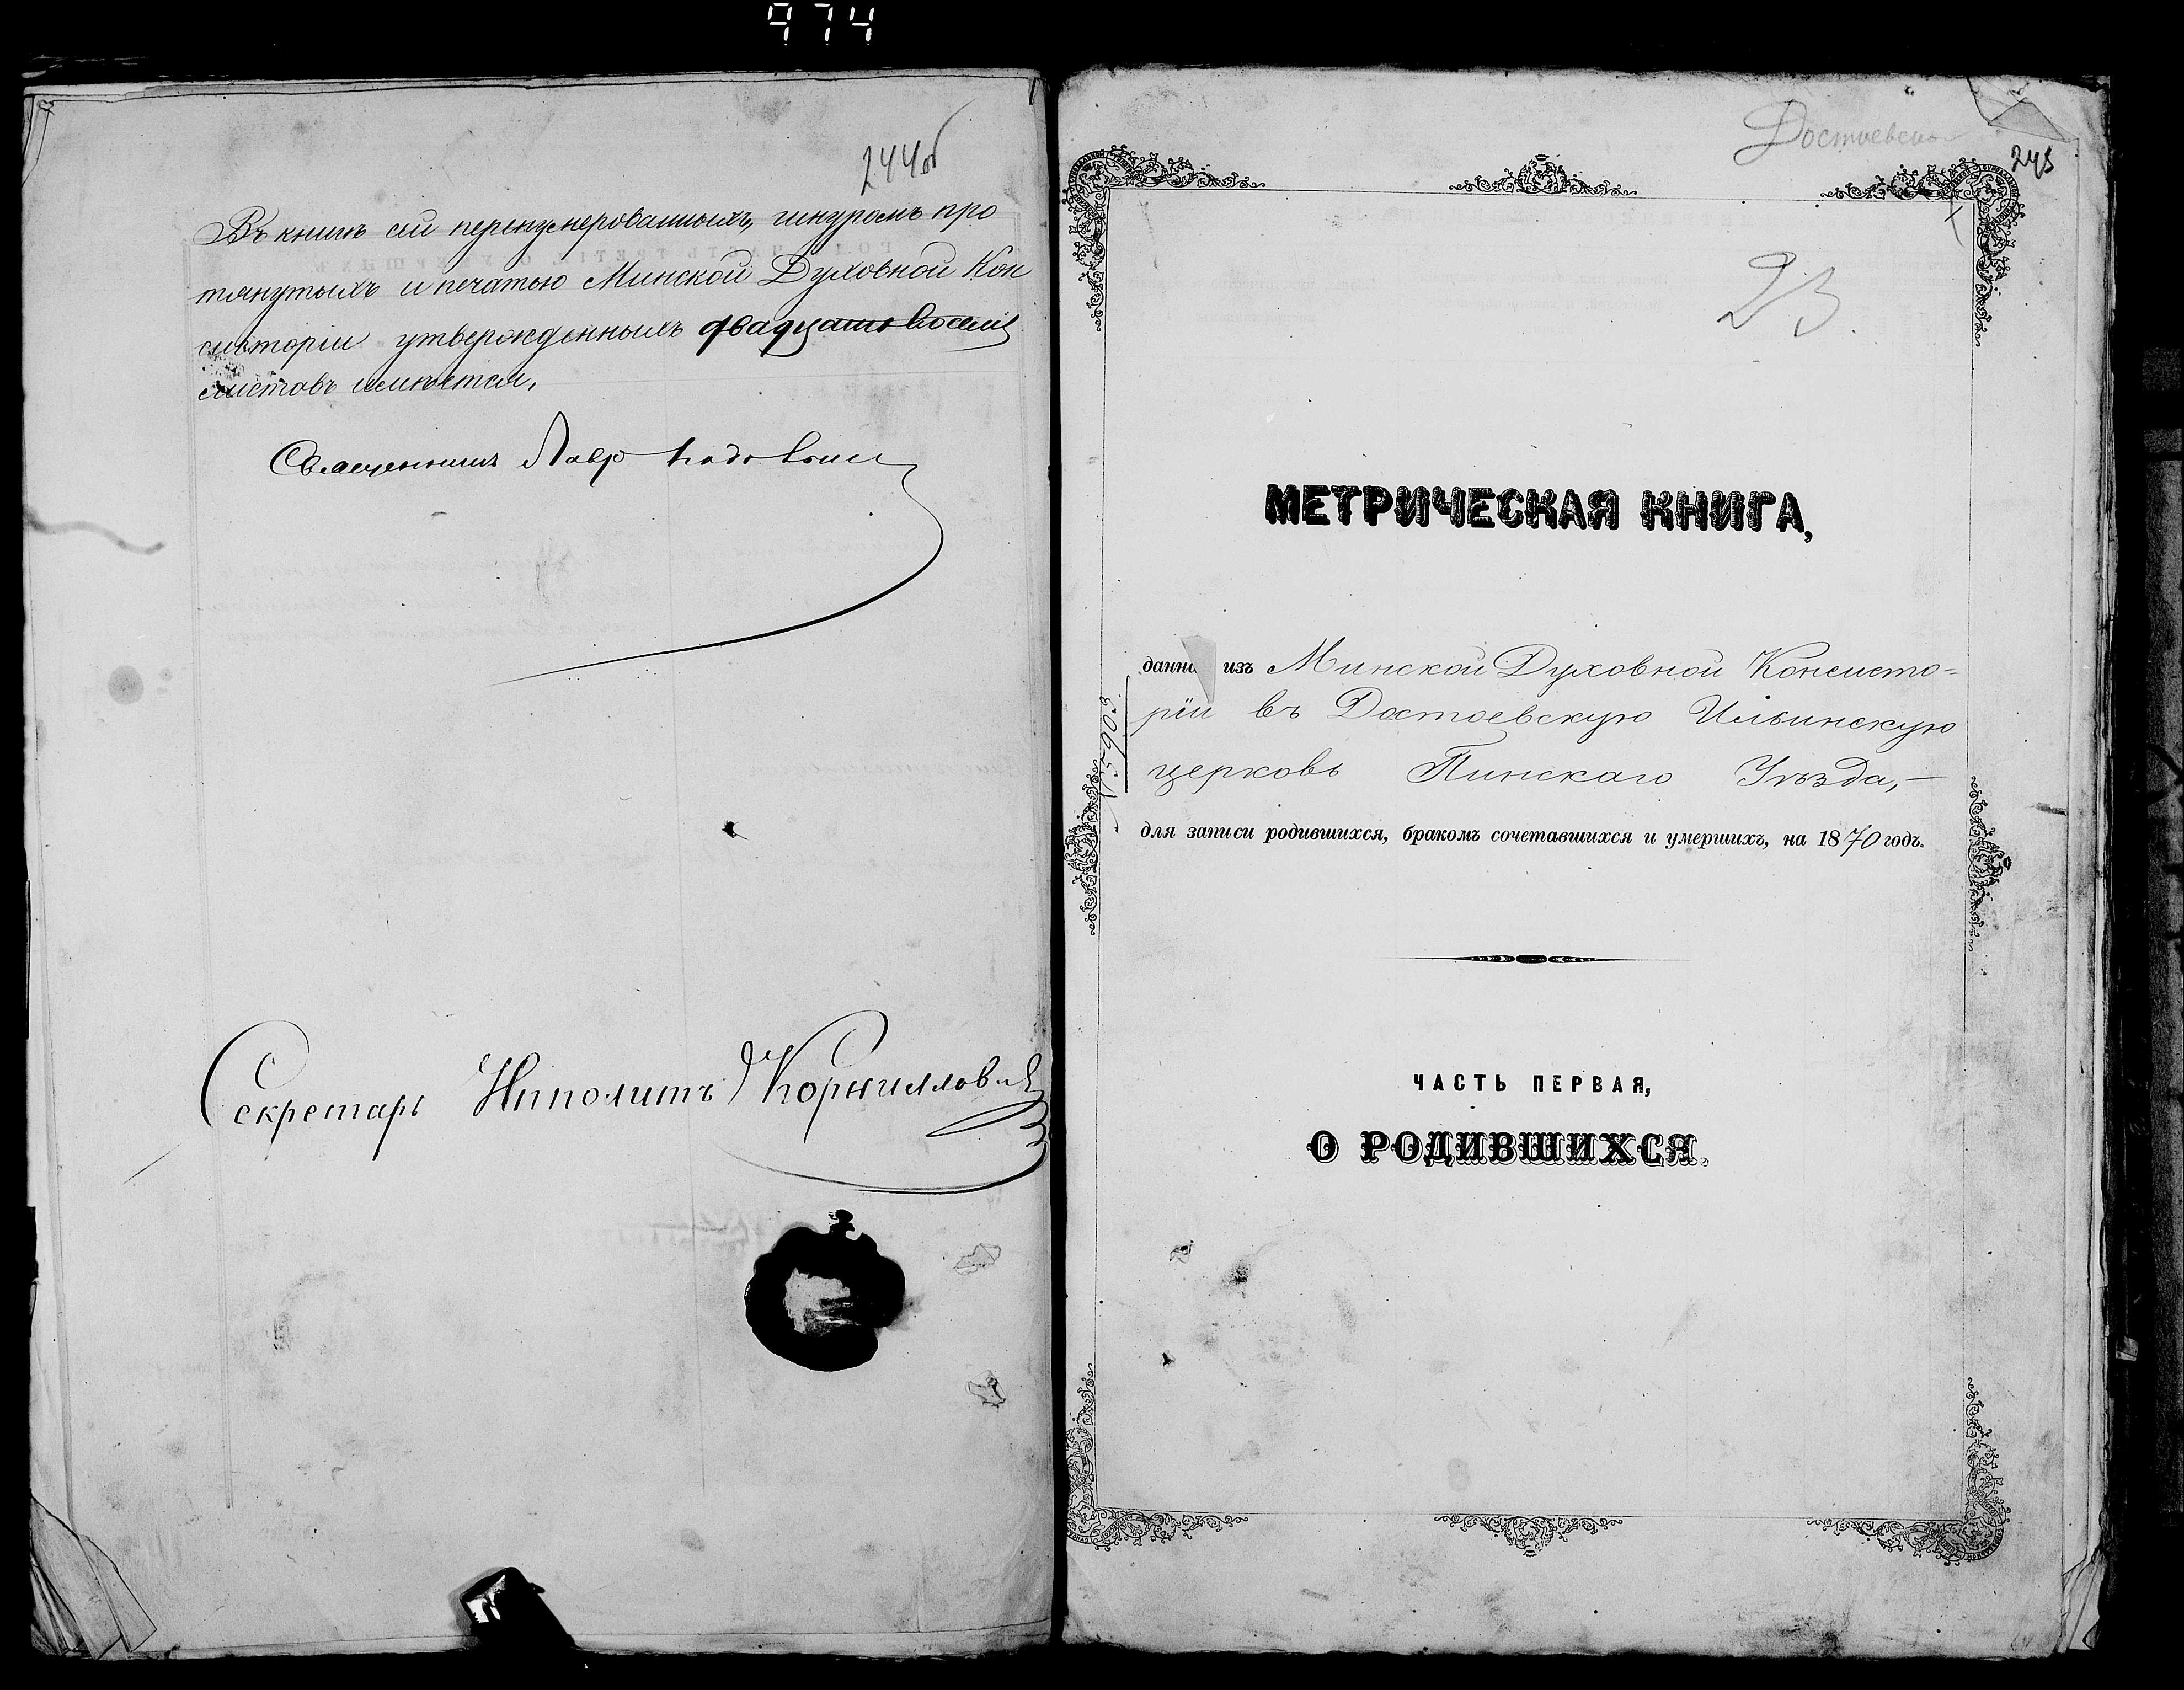 974
244об
Въ книгѣ сей перенумерованныхъ, шнуромъ про
тянутыхъ и печатью Минской Духовной Кон
систоріи утвержденныхъ двадцать восемь
листовъ имѣется,
Священникъ
Секретарь Ипполитъ Корнилловичъ
Достоевск
245
23.
МЕТРИЧЕСКАЯ КНИГА,
данна изъ Минской Духовной Консисто-
ріи въ Достоевскую Ильинскую
церковь Пинскаго Уѣзда,—
15903
для записи родившихся, бракомъ сочетавшихся и умершихъ, на 1870 годъ.
ЧАСТЬ ПЕРВАЯ,
О РОДИВШИХСЯ.